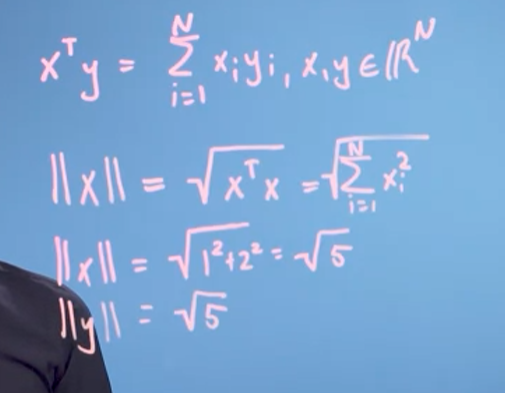 xᵀy = Σᵢ₌₁ᴺ xᵢyᵢ, x,y ∈ ℝᴺ
||x|| = √(xᵀx) = √(Σᵢ₌₁ᴺ xᵢ²)
||x|| = √(1²+2²) = √5
||y|| = √5